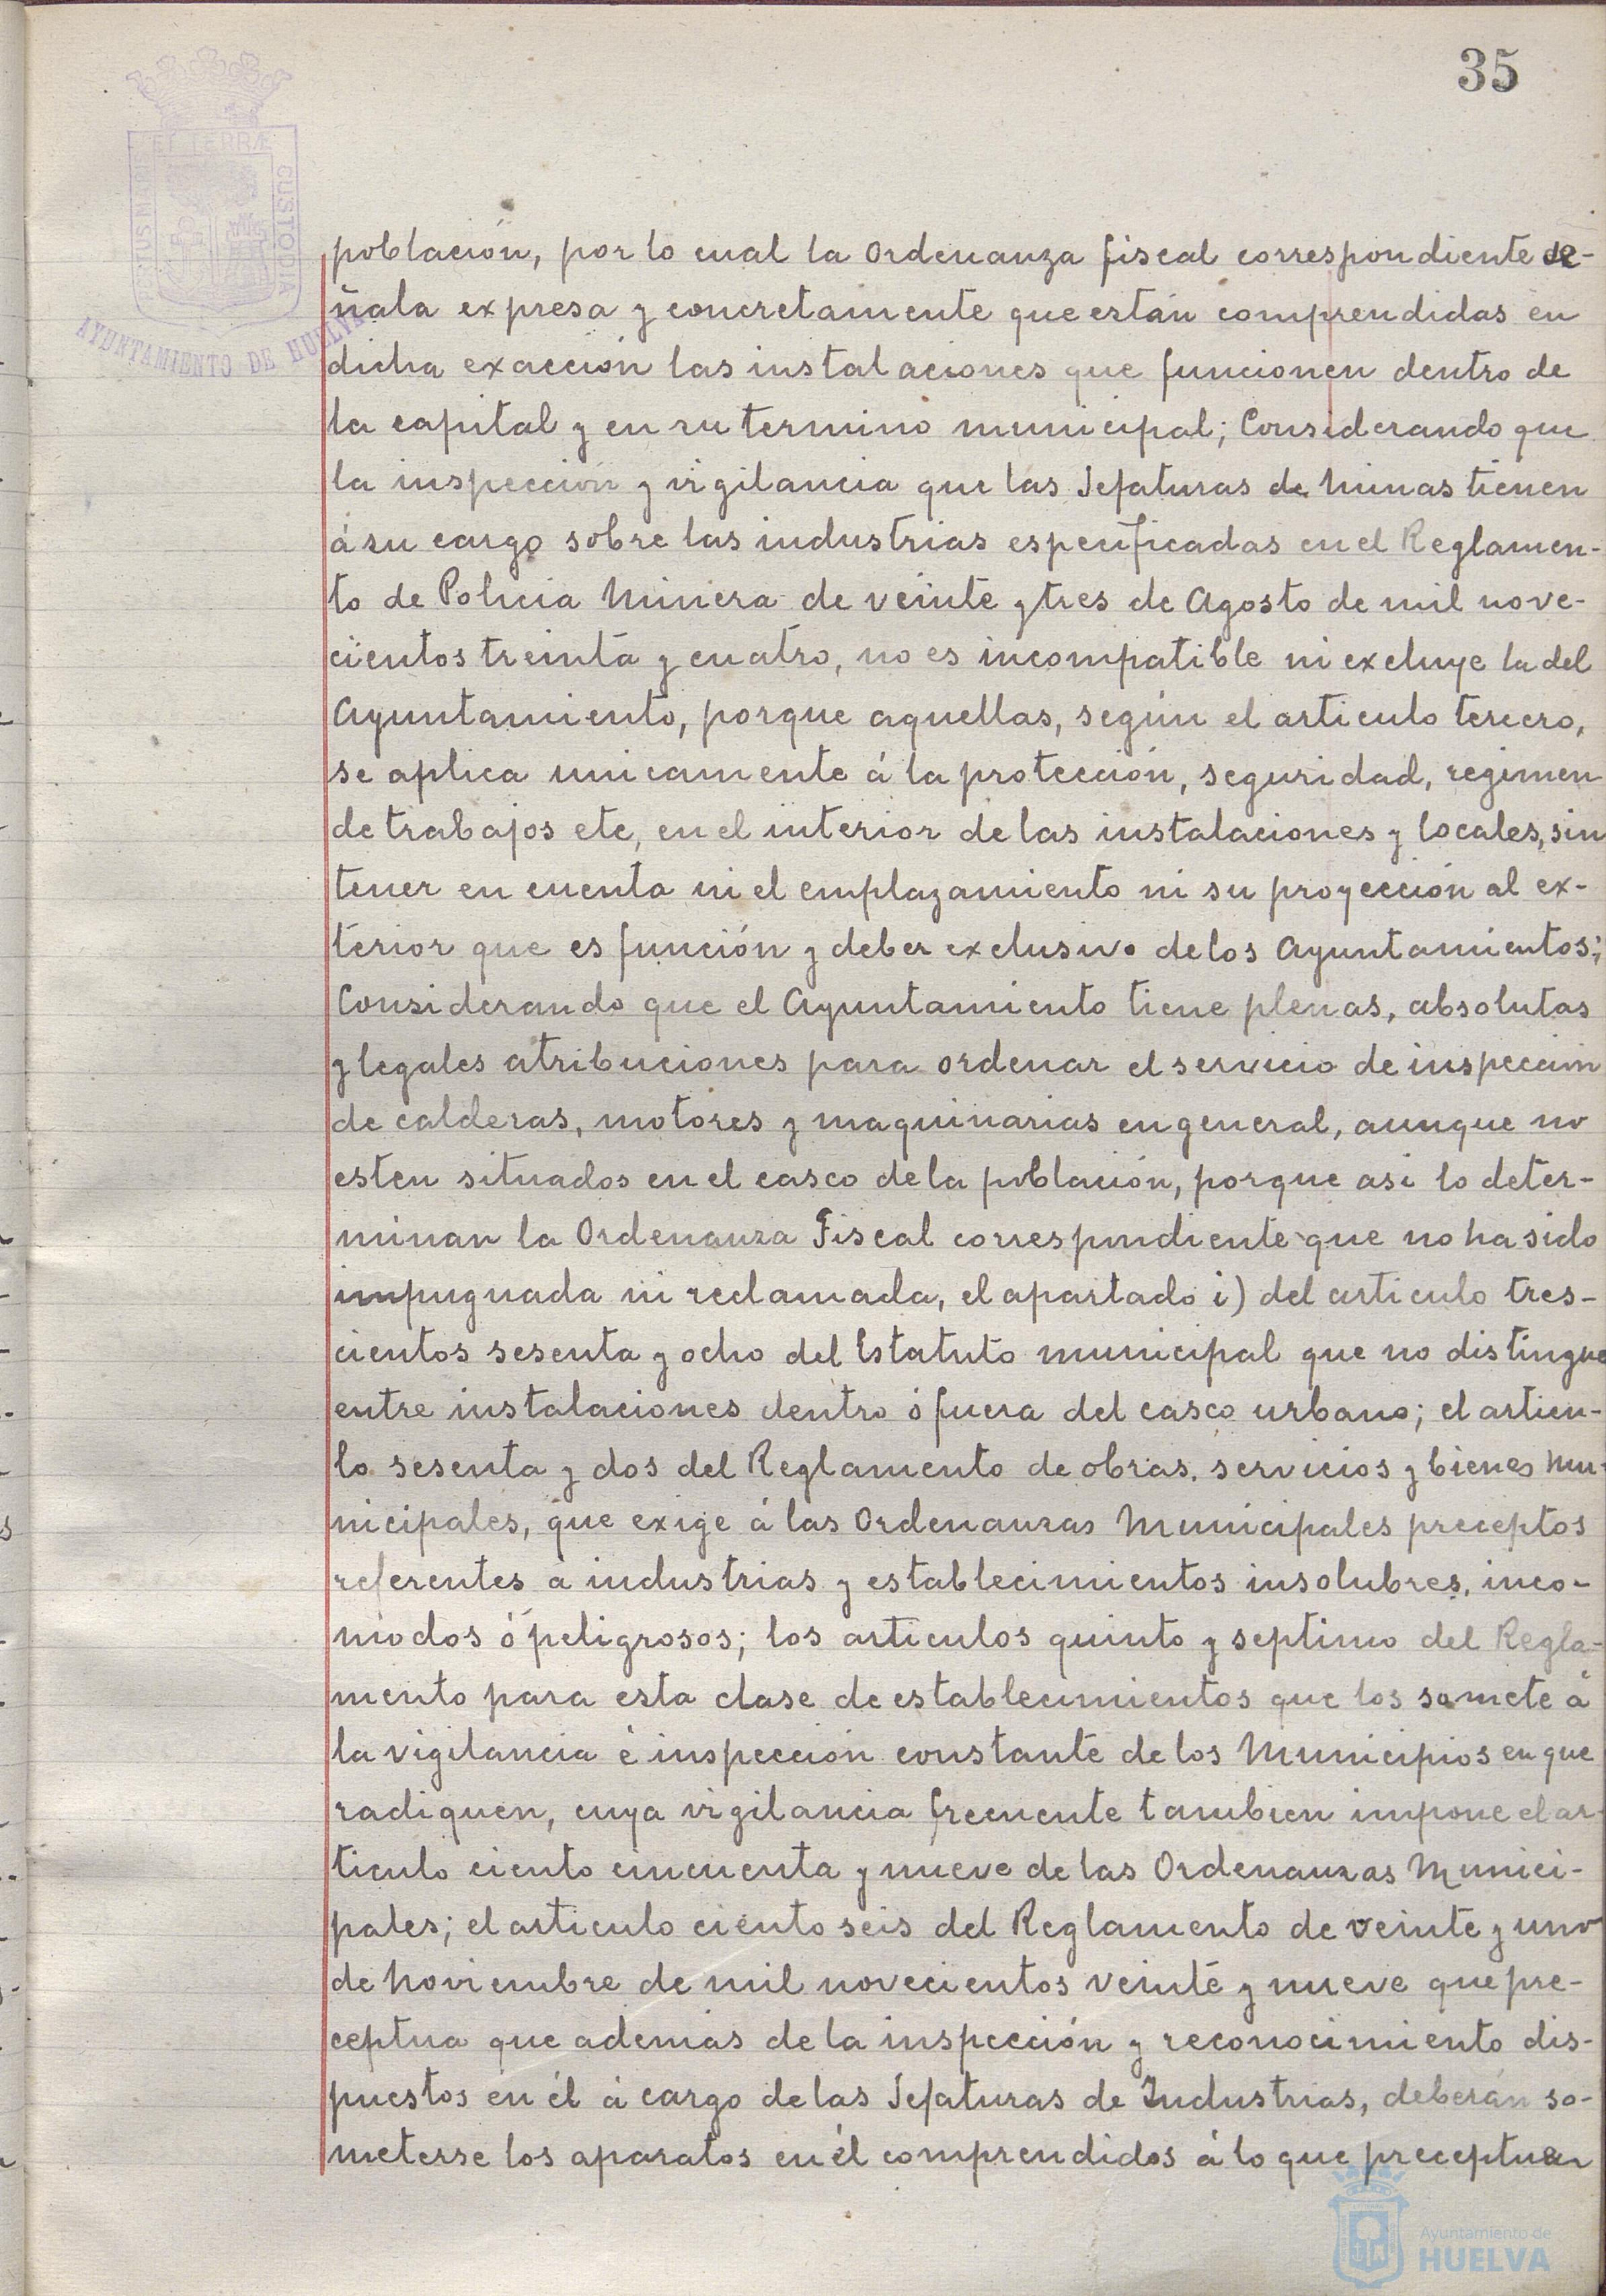 35
ET TERRÆ
CUSTODIA
AYUNTAMIENTO DE HUELVA
población, por lo cual la Ordenanza fiscal correspondiente se-
ñala expresa y concretamente que están comprendidas en
dicha exacción las instalaciones que funcionen dentro de
la capital y en su termino municipal; Considerando que
la inspección y vigilancia que las Jefaturas de Minas tienen
á su cargo sobre las industrias especificadas en el Reglamen-
to de Policia Minera de veinte y tres de Agosto de mil nove-
cientos treinta y cuatro, no es incompatible ni excluye la del
Ayuntamiento, porque aquellas, según el articulo tercero,
se aplica unicamente á la protección, seguridad, regimen
de trabajos etc, en el interior de las instalaciones y locales, sin
tener en cuenta ni el emplazamiento ni su proyección al ex-
terior que es función y deber exclusivo de los Ayuntamientos;
Considerando que el Ayuntamiento tiene plenas, absolutas
y legales atribuciones para ordenar el servicio de inspección
de calderas, motores y maquinarias en general, aunque no
esten situados en el casco de la población, porque asi lo deter-
minan la Ordenanza Fiscal correspondiente que no ha sido
impugnada ni reclamada, el apartado i) del articulo tres-
cientos sesenta y ocho del Estatuto municipal que no distingue
entre instalaciones dentro ó fuera del casco urbano; el articu-
lo sesenta y dos del Reglamento de obras, servicios y bienes Mu-
nicipales, que exige á las Ordenanzas Municipales preceptos
referentes á industrias y establecimientos insolubres, inco-
modos ó peligrosos; los articulos quinto y septimo del Regla-
mento para esta clase de establecimientos que los somete á
la vigilancia é inspección constante de los Municipios en que
radiquen, cuya vigilancia frecuente tambien impone el ar-
ticulo ciento cincuenta y nueve de las Ordenanzas Munici-
pales; el articulo ciento seis del Reglamento de veinte y uno
de Noviembre de mil novecientos veinte y nueve que pre-
ceptua que además de la inspección y reconocimiento dis-
puestos en él á cargo de las Jefaturas de Industrias, deberán so-
meterse los aparatos en él comprendidos á lo que preceptuen
Ayuntamiento de
HUELVA